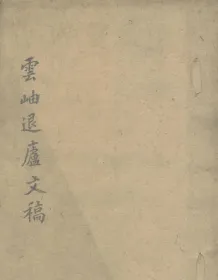 雲岫退廬文稿